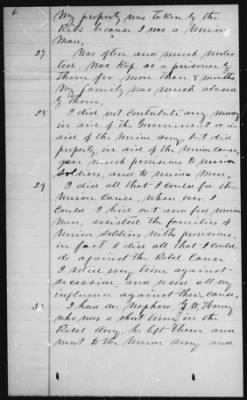 6
My property was taken by the
Rebs because I was a Union
Man,
27 Was often and much moles
ted, was kept as a prisoner by
them for more than 8 months
My family was much abused
by them,
28 I did not contribute any money
in aid of the Government or in
aid of the Union army, but did
property in aid of the Union cause,
gave much provisions to Union
Soldiers, and to Union Men,
29 I did all that I could for the
Union Cause, when ever I
could I hid out and fed union
Men, assisted the families of
Union Soldiers with provisions,
in fact I did all that I could,
do against the Rebel Cause
I voted every time against
secession, and used all my
influence against their Cause,
I had one Nephew,
who was a short time in the
Rebel Army, he left them and
went to the Union Army and